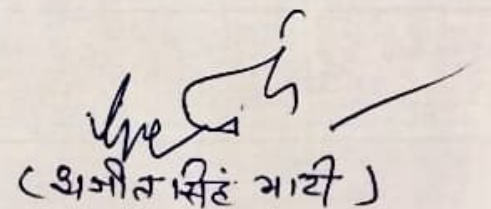 (अजीत सिहं भाटी)